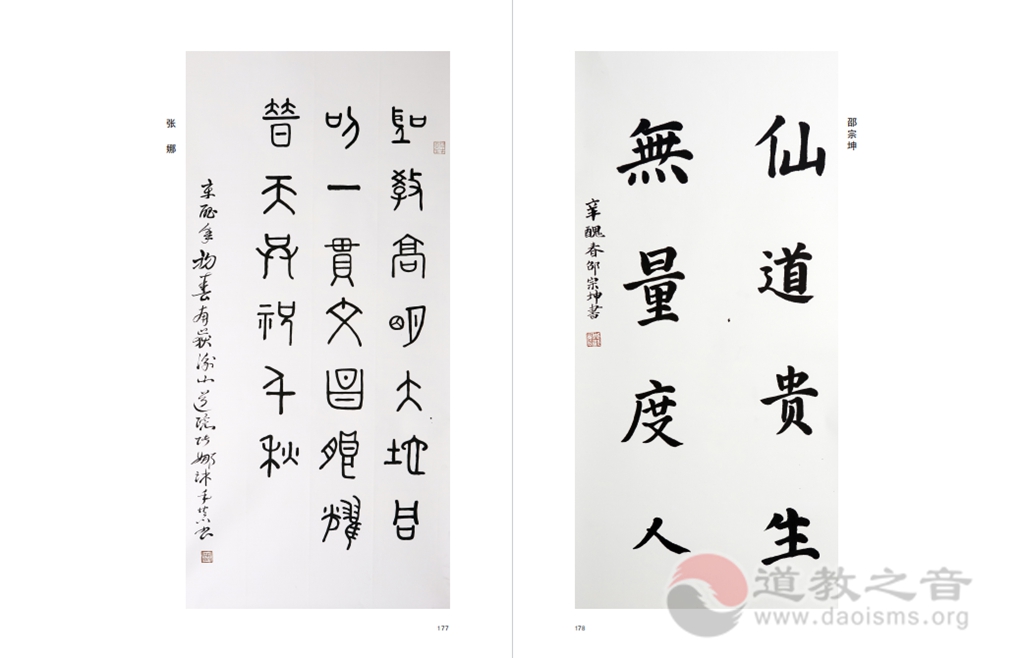 张娜
教高明大地
一貫文耀
普天共祝千秋
辛醜年初春有山道院娜沐手書
177
邵宗坤
仙道贵生
無量度人
辛醜春邵宗坤書
178
道教之音
www.daoisms.org